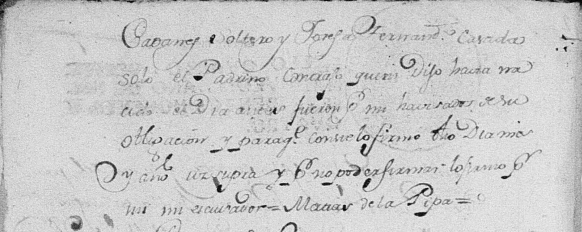 Cabanes Soltero y Josefa Fernand.ˢ Casada
solo el Padrino Conciaˢ quien Dijo havia na
cido el Dia a que fueron p mi havisados de su
obligacion y paraq.ᵉ Conste lo firmo dho Dia mes
y año ut supra y p no poder firmar lo firmo p
mi mi = Macias de la Pipa =